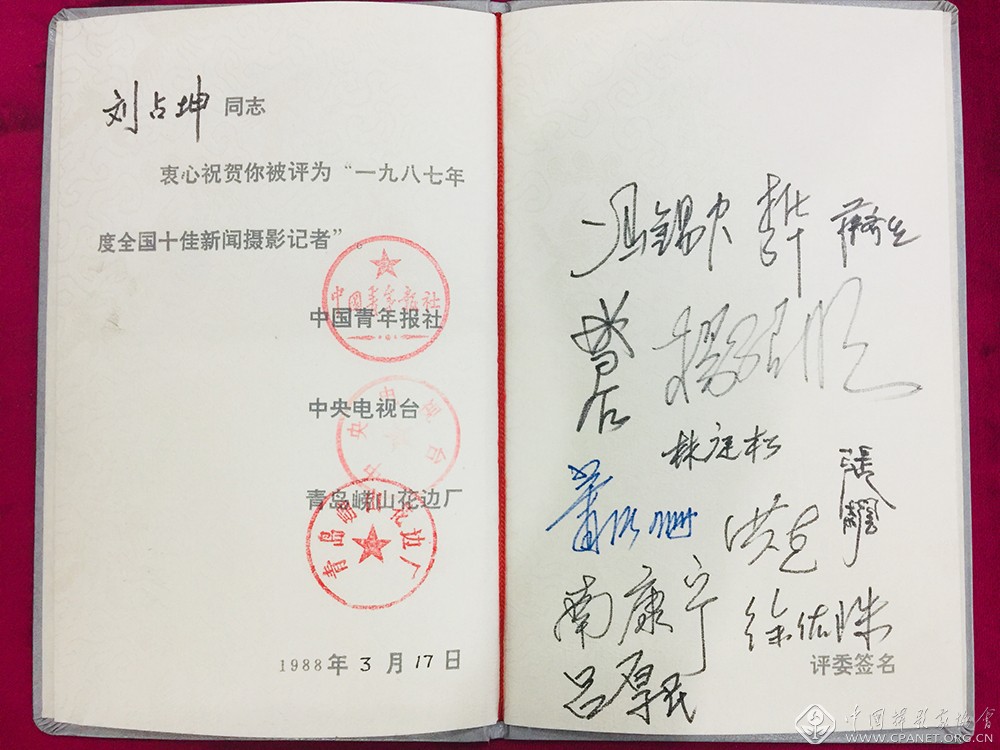 刘占坤 同志
衷心祝贺你被评为“一九八七年
度全国十佳新闻摄影记者”。
中国青年报社
中国青年报社
中央电视台
中央电视台
青岛崂山花边厂
青岛崂山花边厂
1988年3月17日
蒋齐生
林廷松
洪克
南康宁
徐佑珠
吕厚民
评委签名
中国摄影家协会
WWW.CPANET.ORG.CN